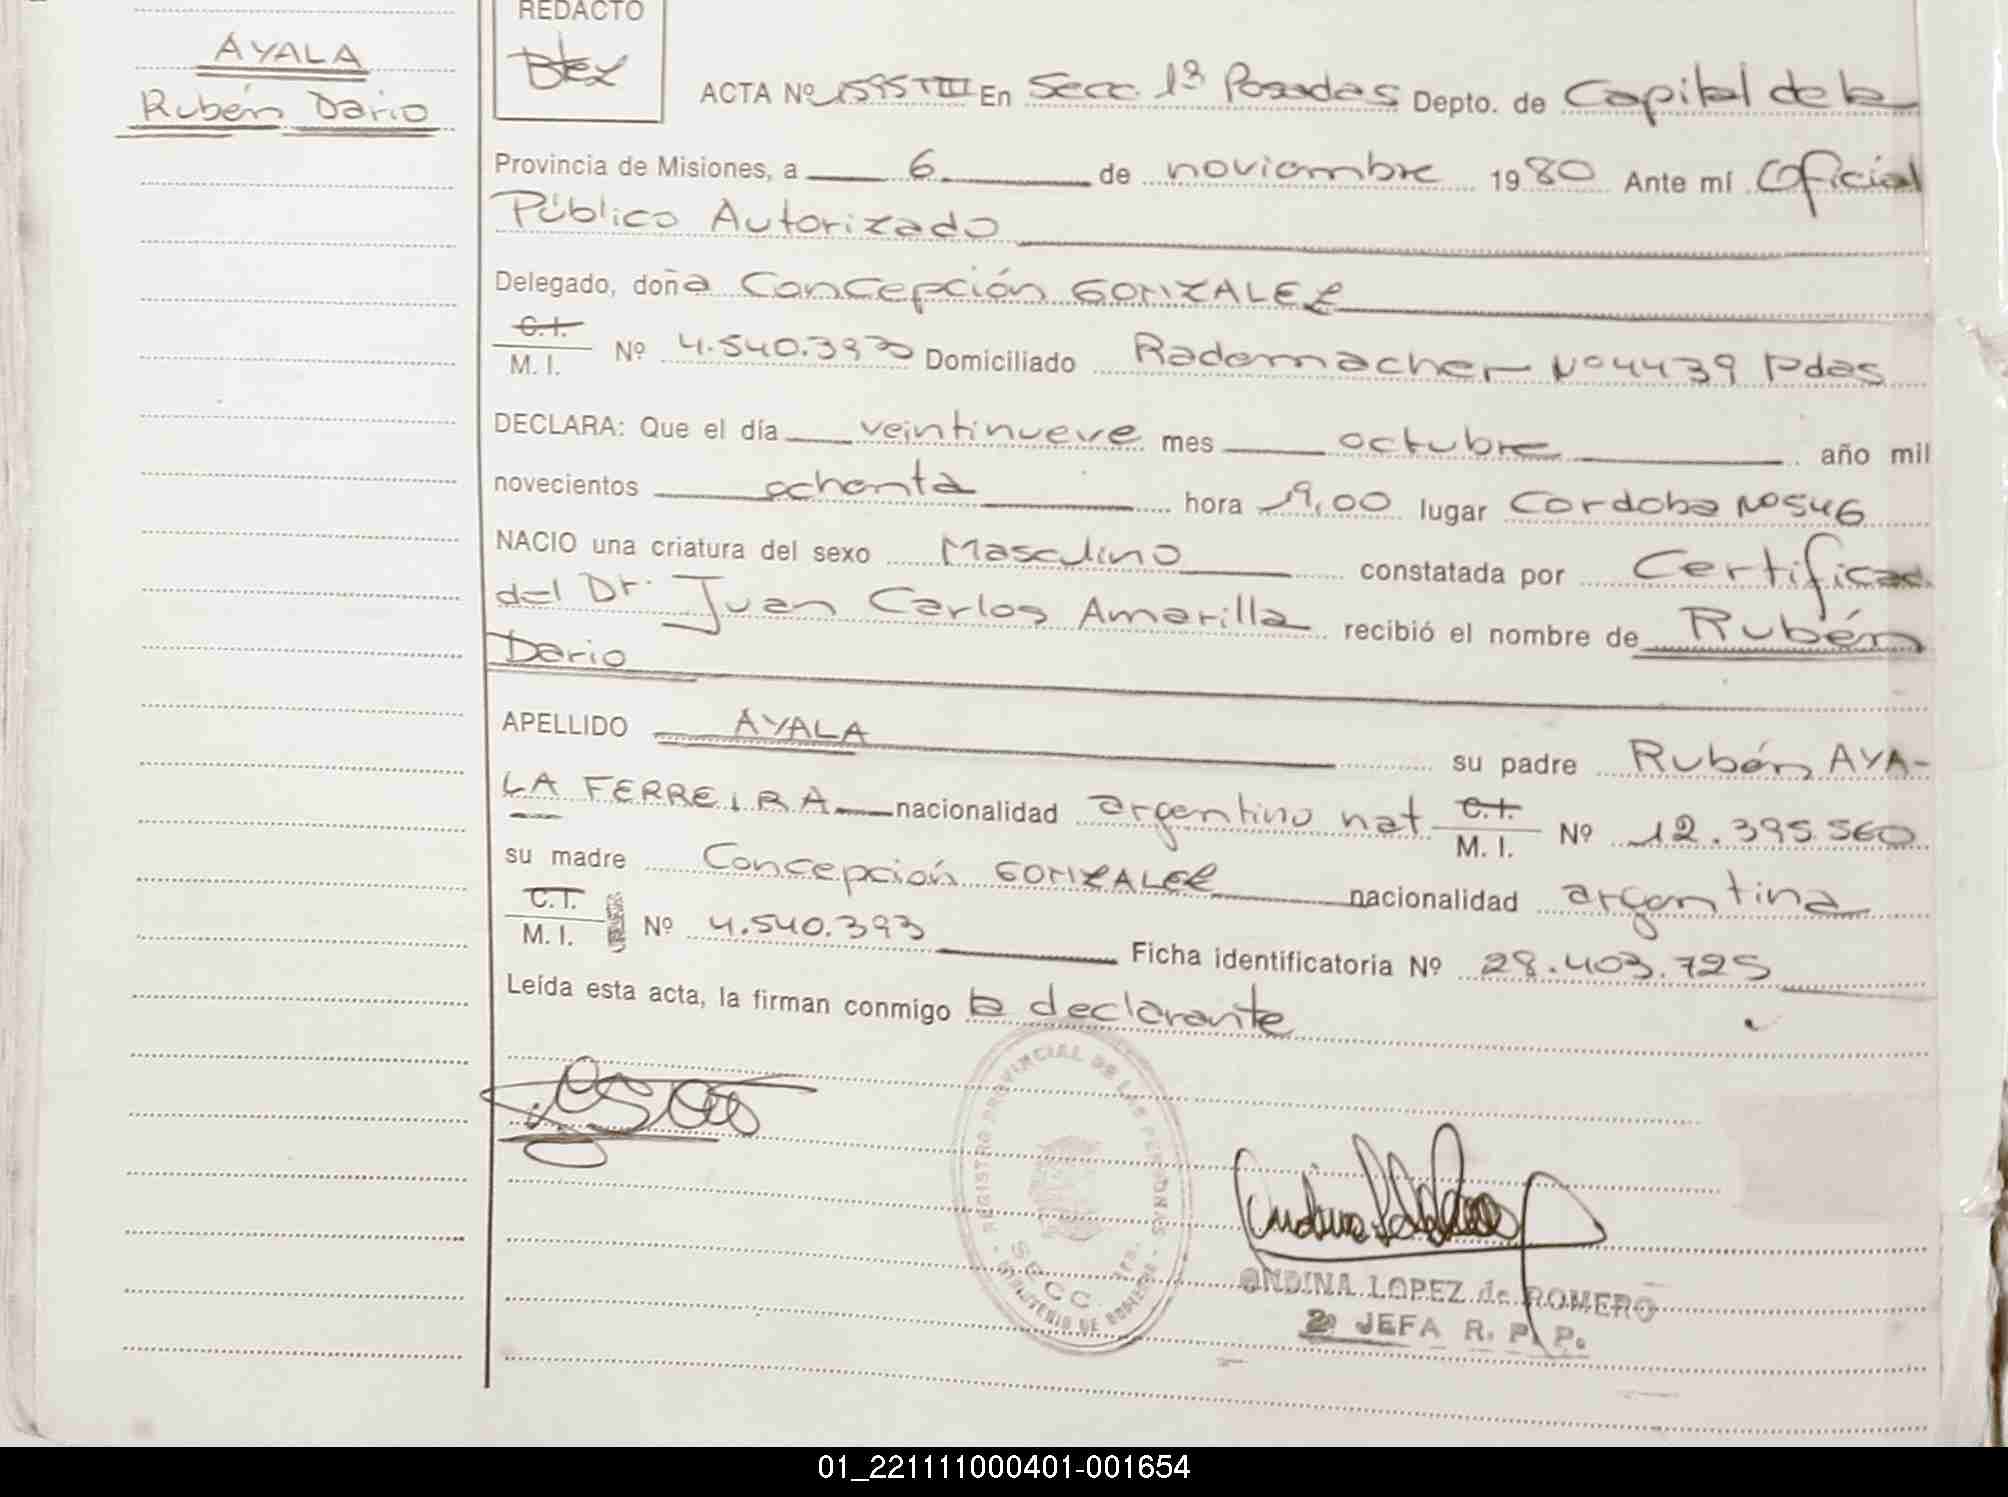 AYALA
Rubén Dario
REDACTO
ACTA Nº 1595 TIII En Secc. 1ª Posadas Depto. de Capital de la
Provincia de Misiones, a 6 de noviembre 1980 Ante mí Oficial
Público Autorizado
Delegado, doña Concepción GONZALEZ
C.I.
M. I. Nº 4.540.393 Domiciliado Rademacher Nº 4439 Pdas
DECLARA: Que el día veintinueve mes octubre año mil
novecientos ochenta hora 19,00 lugar Cordoba Nº 546
NACIO una criatura del sexo Masculino constatada por Certificad.
del Dr. Juan Carlos Amarilla recibió el nombre de Rubén
Dario
APELLIDO AYALA su padre Rubén AYA-
LA FERREIRA nacionalidad argentino nat C.I.
M. I. Nº 12.395.560
su madre Concepción GONZALEZ nacionalidad argentina
C.I.
M. I. Nº 4.540.393 Ficha identificatoria Nº 28.403.725
Leída esta acta, la firman conmigo la declarante
REGISTRO PROVINCIAL DE LAS PERSONAS
SECC. 1ra.
MINISTERIO DE GOBIERNO
ONDINA LOPEZ de ROMERO
2ª JEFA R. P. P.
01_221111000401-001654